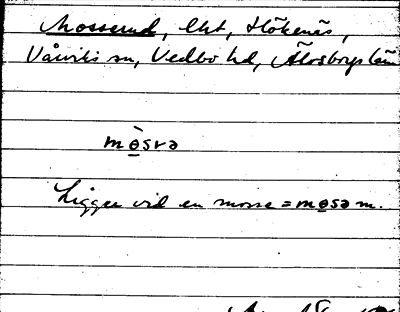 Mosserud, lht, Hökenäs,
Vårviks sn, Vedbo hd, Älvsborgs län
mò̲srə
Ligger vid en mosse = mo̲sə m.